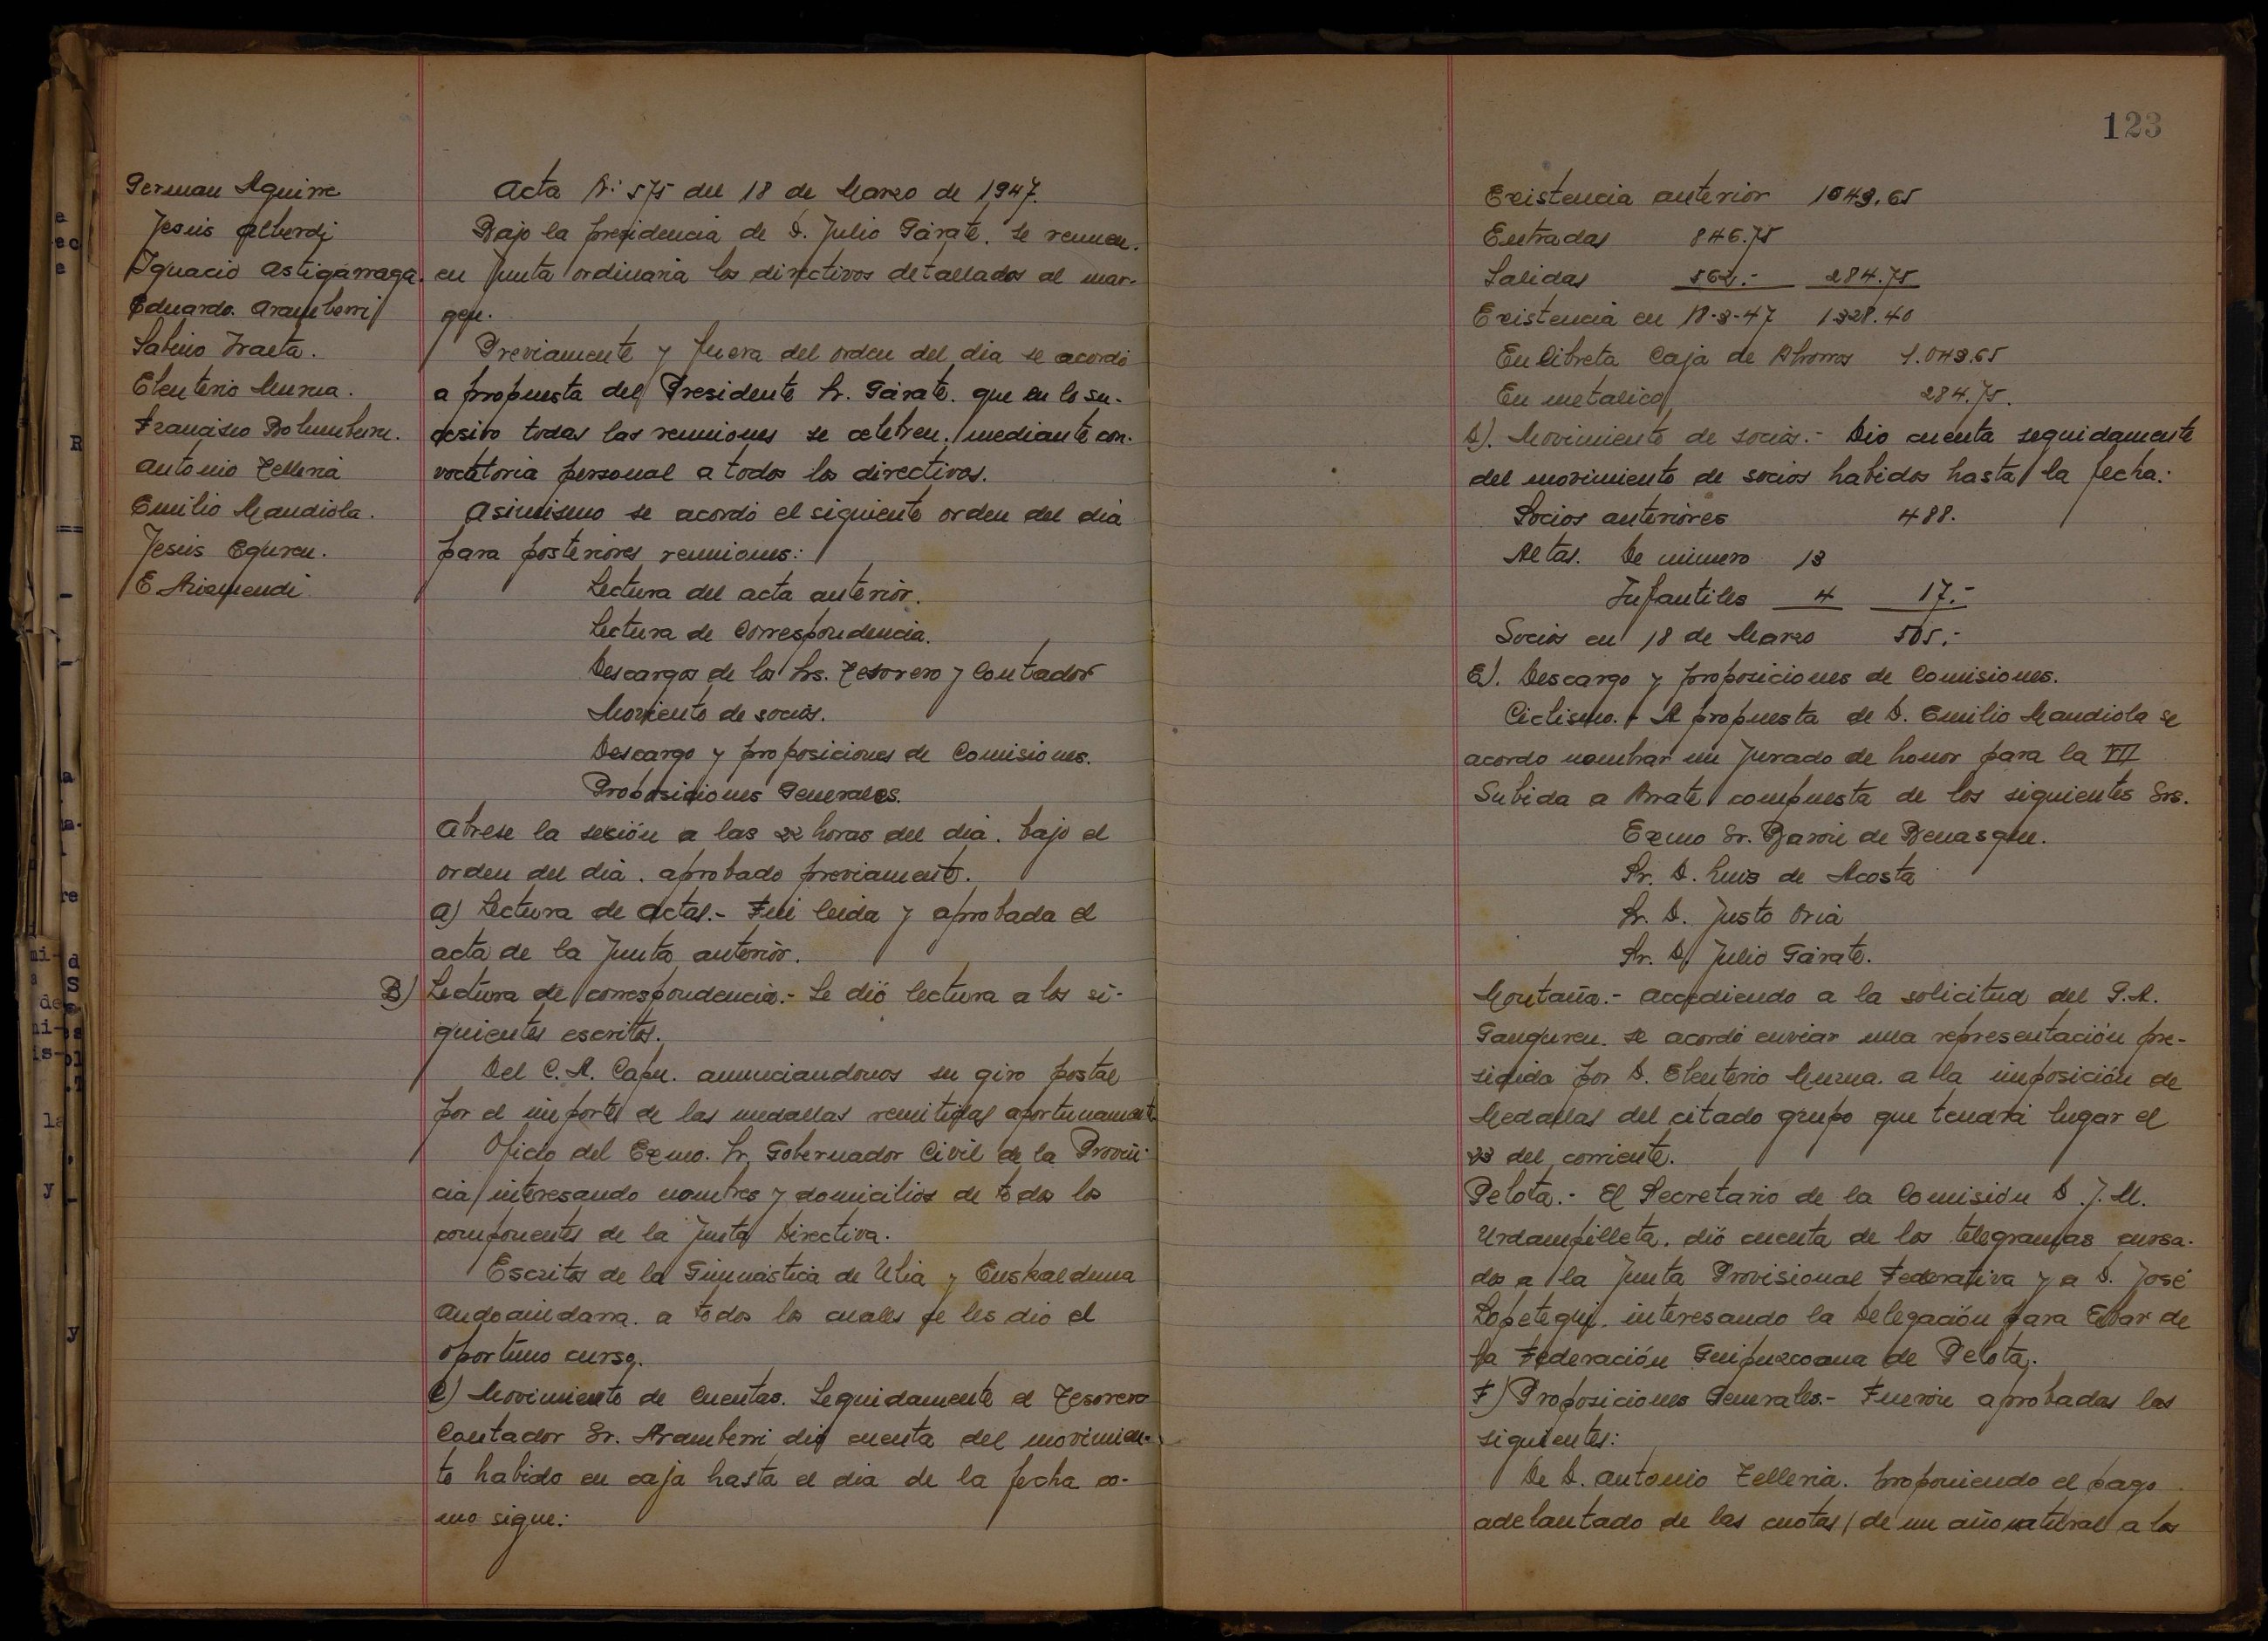 German Aguirre
Jesús Alberdi
Ignacio Astigárraga.
Eduardo. Aramberri
Sabino Iraeta.
Eleuterio Murua.
Francisco Bolumburu.
Antonio Telleria
Emilio Mandiola.
Jesús Eguren.
E. Arizmendi
Acta Nº 575 del 18 de Marzo de 1947.
Bajo la presidencia de D. Julio Gárate. se reunen.
en Junta ordinaria los directivos detallados al mar-
gen.
Previamente y fuera del orden del dia se acordó
a propuesta del Presidente Sr. Gárate. que en lo su-
cesivo todas las reuniones se celebren. mediante con-
vocatoria personal a todos los directivos.
Asimismo se acordó el siguiente orden del dia
para posteriores reuniones:
Lectura del acta anterior.
Lectura de Correspondencia.
Descargos de los Srs. Tesorero y Contador
Moviento de socios.
Descargo y proposiciones de Comisiones.
Proposiciones Generales.
Abrese la sesión a las 22 horas del dia. bajo el
orden del dia. aprobado previamente.
a) Lectura de actas.- Fué leida y aprobada el
acta de la Junta anterior.
B) Lectura de correspondencia.- Se dió lectura a los si-
guientes escritos.
Del C. A. Capu. anunciandonos su giro postal
por el importe de las medallas remitidas aportunamente
Oficio del Exmo. Sr. Gobernador Civil de la Provin-
cia interesando nombres y domicilios de todos los
componentes de la Junta Directiva.
Escritos de la Gimnástica de Ulia y Euskalduna
Andoaindarra. a todos los cuales se les dio el
oportuno curso.
C) Movimiento de Cuentas. Seguidamente el Tesorero
Contador Sr. Aramberri dio cuenta del movimien-
to habido en caja hasta el dia de la fecha co-
mo sigue:
123
Existencia anterior 1043.65
Entradas 846.75
Salidas 562.- 284.75
Existencia en 18-3-47 1328.40
En Libreta Caja de Ahorros 1.043.65
En metalico 284.75.
D). Movimiento de socios.- Dio cuenta seguidamente
del movimiento de socios habidos hasta la fecha:
Socios anteriores 488.
Altas. De número 13
Infantiles 4 17.-
Socios en 18 de Marzo 505.-
E). Descargo y proposiciones de Comisiones.
Ciclismo. A propuesta de D. Emilio Mandiola se
acordo nombrar un Jurado de honor para la VII
Subida a Arrate compuesta de los siguientes Srs.
Exmo Sr. Barón de Benasque.
Sr. D. Luis de Acosta
Sr. D. Justo Oria
Sr. D. Julio Gárate.
Montaña.- accediendo a la solicitud del G.A.
Ganguren. se acordó enviar una representación pre-
sidida por D. Eleuterio Murua. a la imposición de
Medallas del citado grupo que tendrá lugar el
23 del corriente.
Pelota.- El Secretario de la Comisión D. J. M.
Urdampilleta. dió cuenta de los telegramas cursa-
dos a la Junta Provisional Federativa y a D. José
Lopetegui. interesando la Delegación para Eibar de
la Federación Guipuzcoana de Pelota.
F) Proposiciones Generales.- Fueron aprobadas las
siguientes:
De D. Antonio Telleria. proponiendo el pago
adelantado de las cuotas de un año natural a los